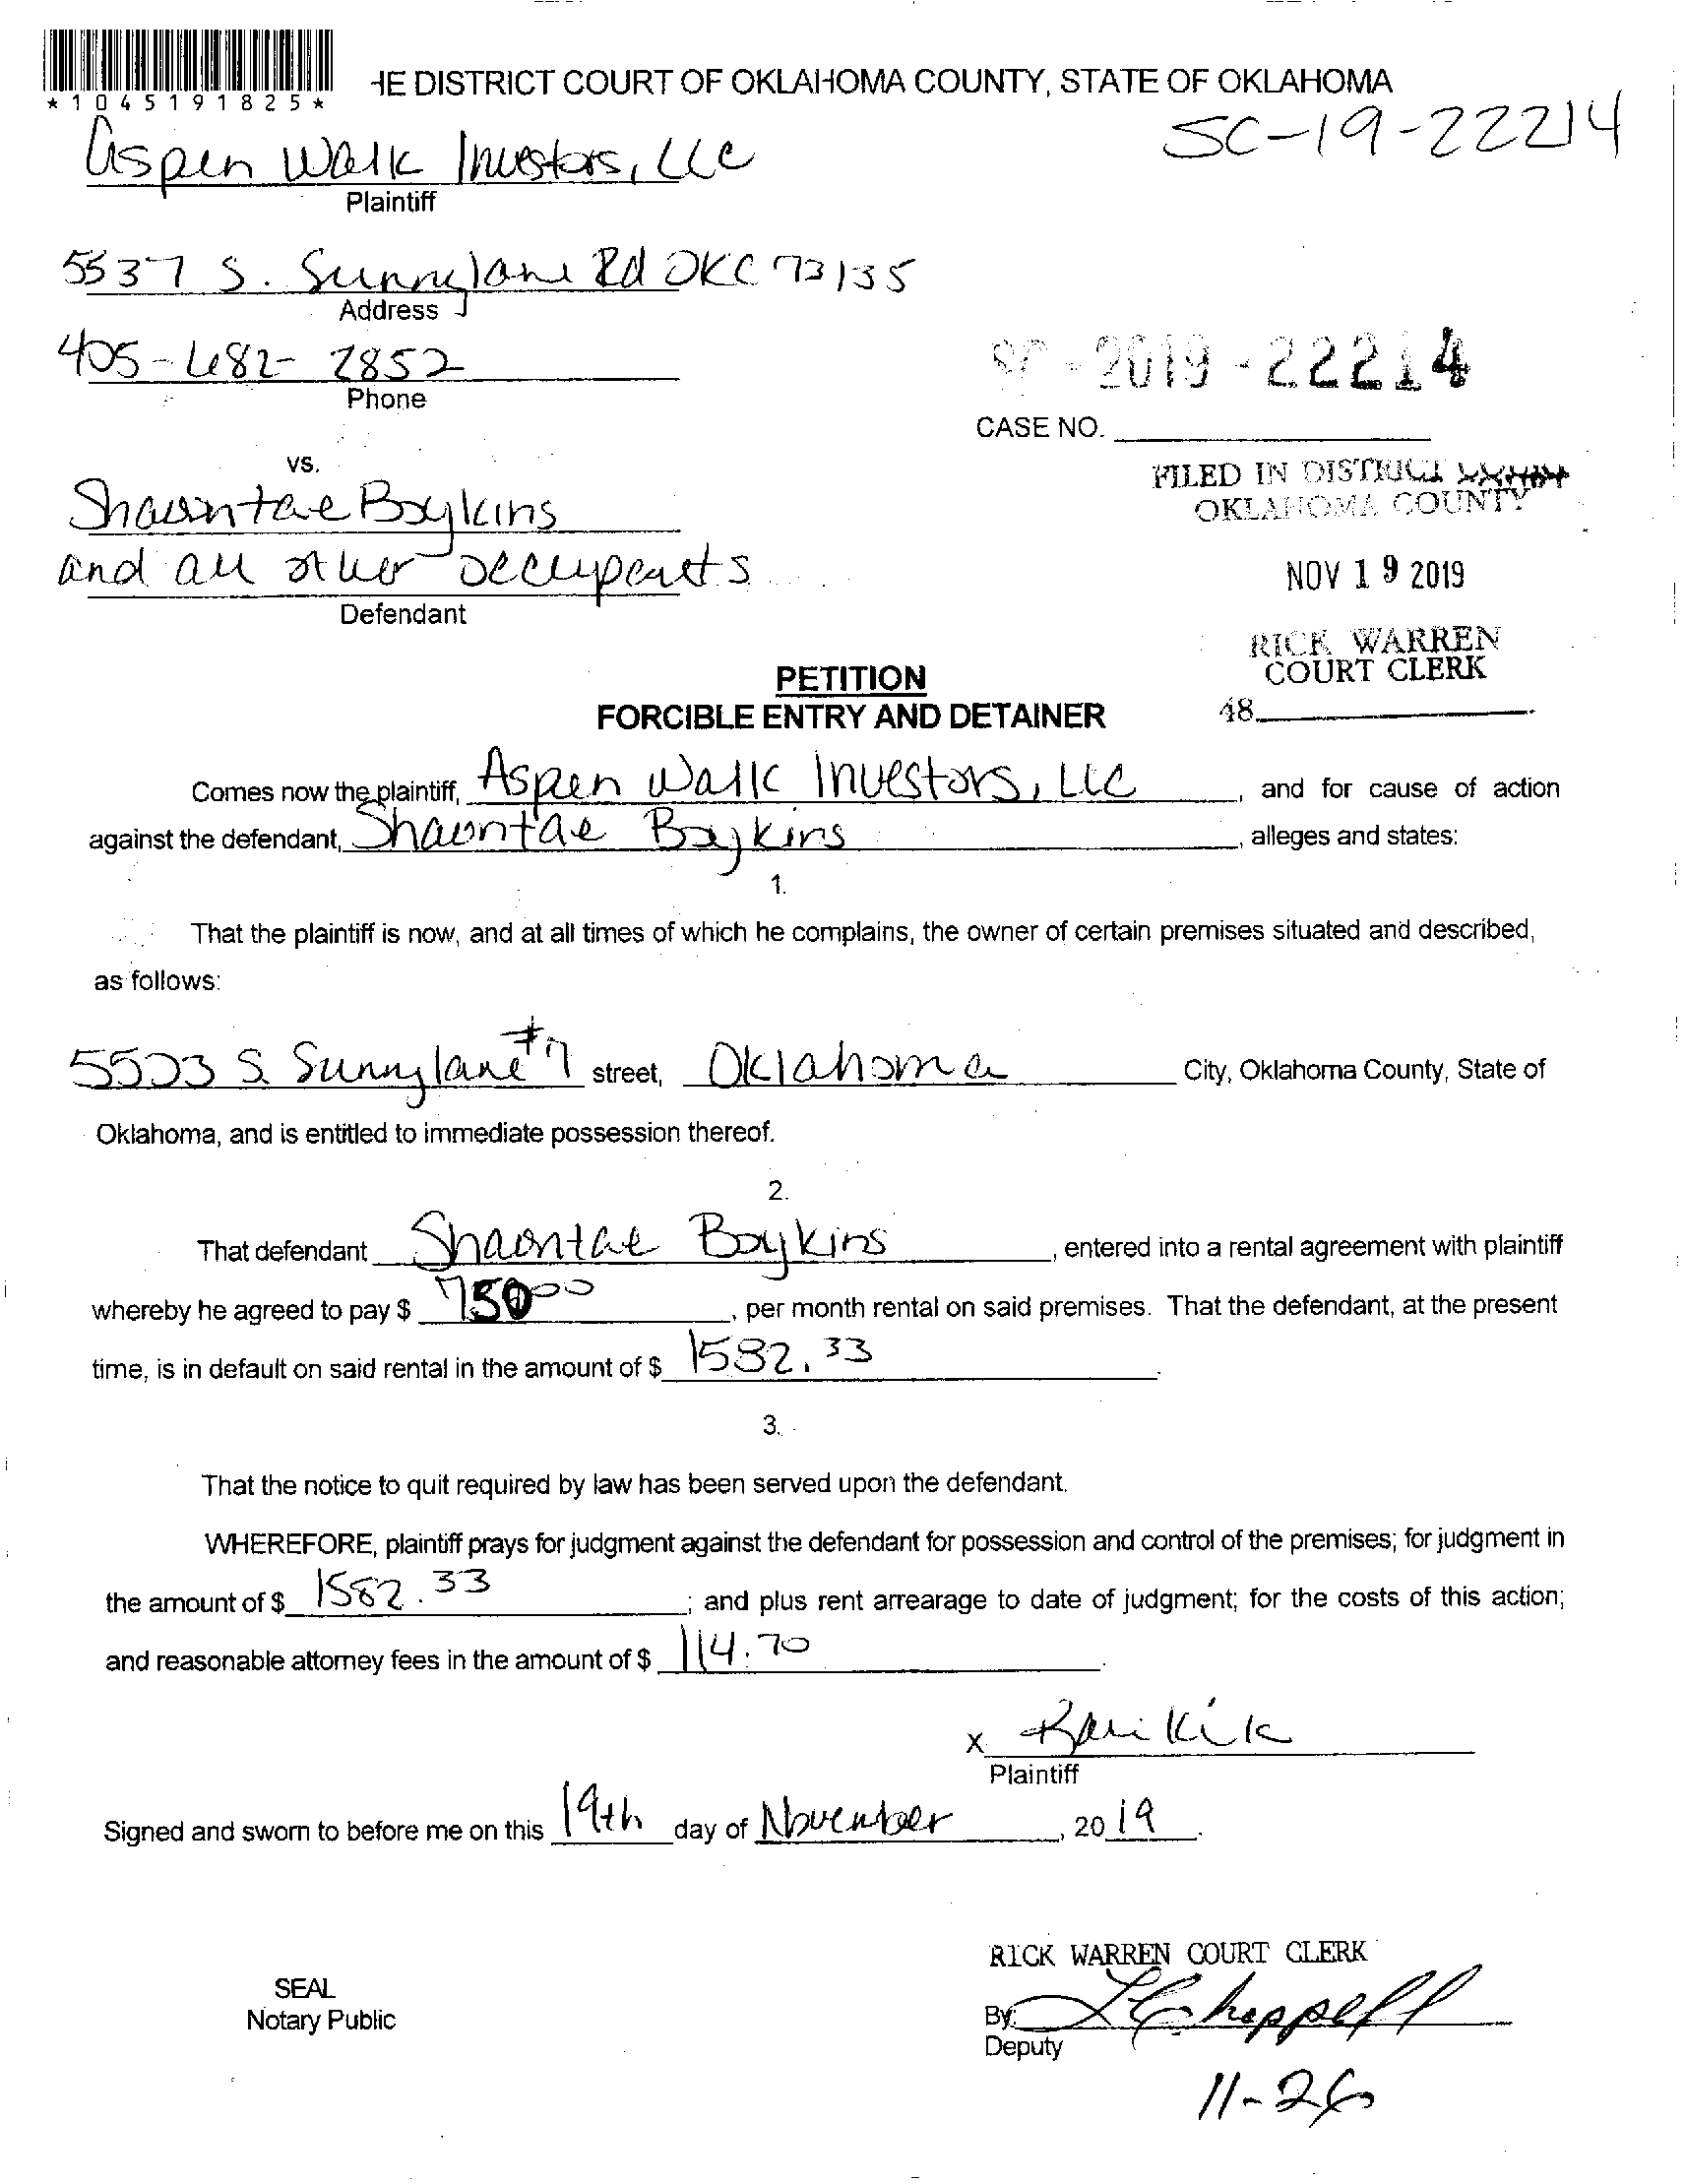 *1045191825*
HE DISTRICT COURT OF OKLAHOMA COUNTY, STATE OF OKLAHOMA
SC-19-22214
Aspen Walk Investors, LLC
Plaintiff
5537 S. Sunnylane Rd OKC 73135
Address
405-682-7852
Phone
SC-2019-22214
CASE NO.
vs.
FILED IN DISTRICT COURT
OKLAHOMA COUNTY
Shauntae Boykins
and all other occupants
Defendant
NOV 19 2019
RICK WARREN
COURT CLERK
48
PETITION
FORCIBLE ENTRY AND DETAINER
Comes now the plaintiff, Aspen Walk Investors, LLC, and for cause of action
against the defendant, Shauntae Boykins, alleges and states:
1.
That the plaintiff is now, and at all times of which he complains, the owner of certain premises situated and described,
as follows:
5503 S. Sunnylane #7 street, Oklahoma City, Oklahoma County, State of
Oklahoma, and is entitled to immediate possession thereof.
2.
That defendant Shauntae Boykins, entered into a rental agreement with plaintiff
whereby he agreed to pay $ 750 00, per month rental on said premises. That the defendant, at the present
time, is in default on said rental in the amount of $ 1582.33.
3.
That the notice to quit required by law has been served upon the defendant.
WHEREFORE, plaintiff prays for judgment against the defendant for possession and control of the premises; for judgment in
the amount of $ 1582.33; and plus rent arrearage to date of judgment; for the costs of this action;
and reasonable attorney fees in the amount of $ 114.70.
X
Plaintiff
Signed and sworn to before me on this 19th day of November, 2019.
RICK WARREN COURT CLERK
SEAL
Notary Public
By: L Chappell
Deputy
11-26